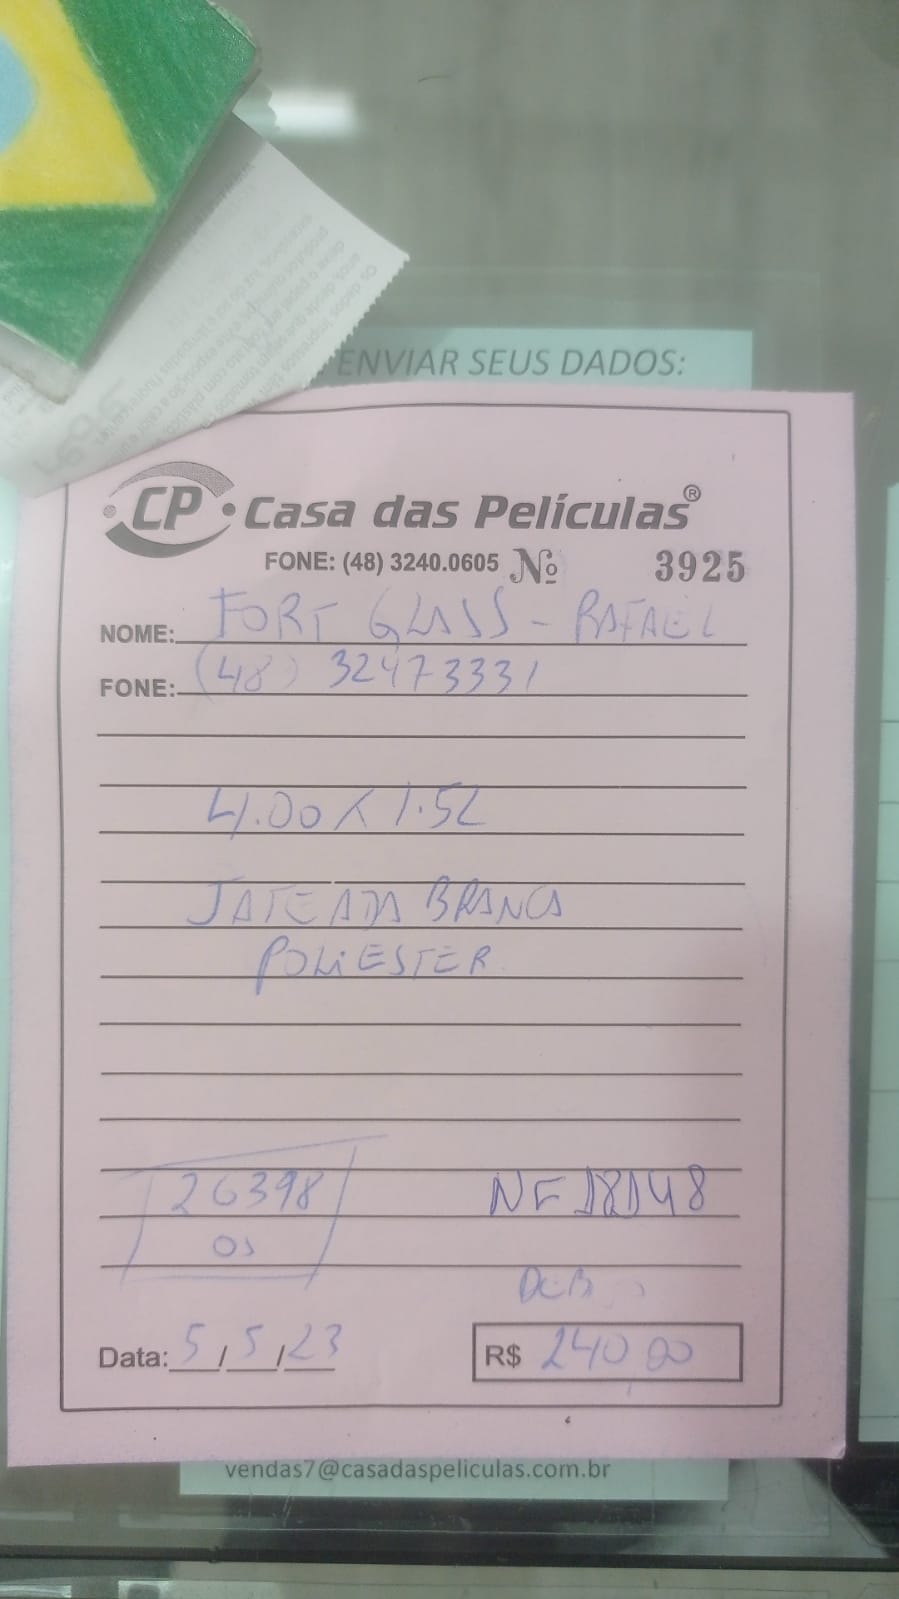 ENVIAR SEUS DADOS:
CP Casa das Películas®
FONE: (48) 3240.0605 Nº 3925
NOME: FORT GLASS - RAFAEL
FONE: (48) 32473331
4.00 X 1.52
JATEADA BRANCA
POLIESTER
26398 NF 18148
OS
DEB
Data: 5/5/23 R$ 240,00
vendas7@casadaspeliculas.com.br